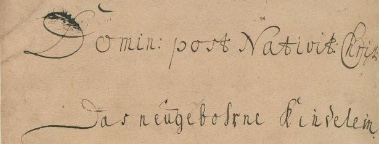 Domin: post Nativit: Christ
Das neugebohrne Kindelein.